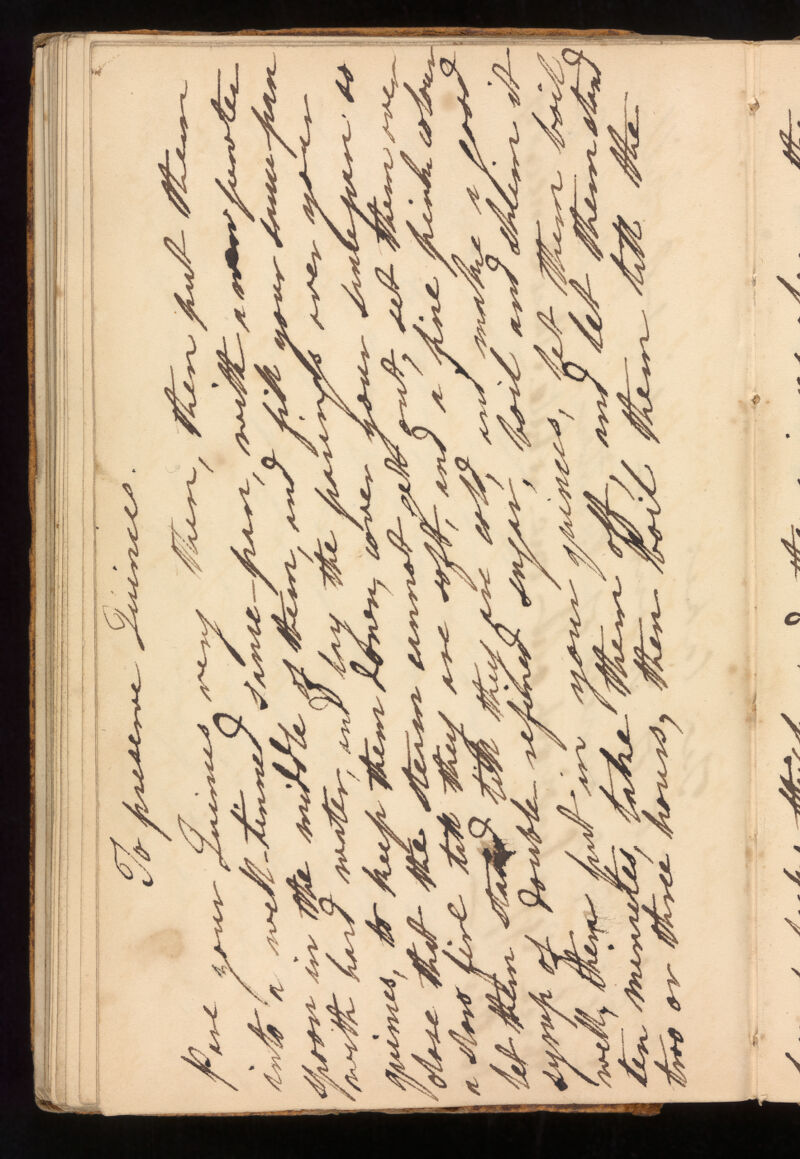 To preserve Quinces.
Pare your Quinces very thin, then put them
into a well-tinned sauce-pan, with a new pewter
spoon in the middle of them, and fill your saucepan
with hard water, and lay the parings over your
quinces, to keep them down, cover your saucepan so
close that the steam cannot get out, set them over
a slow fire till they are soft, and a fine pink colour
let them stand till they are cold, and make a good
syrup of double refined sugar, boil and skim it
well, then put in your quinces, let them boil
ten minutes, take them off, and let them stand
two or three hours, then boil them till the